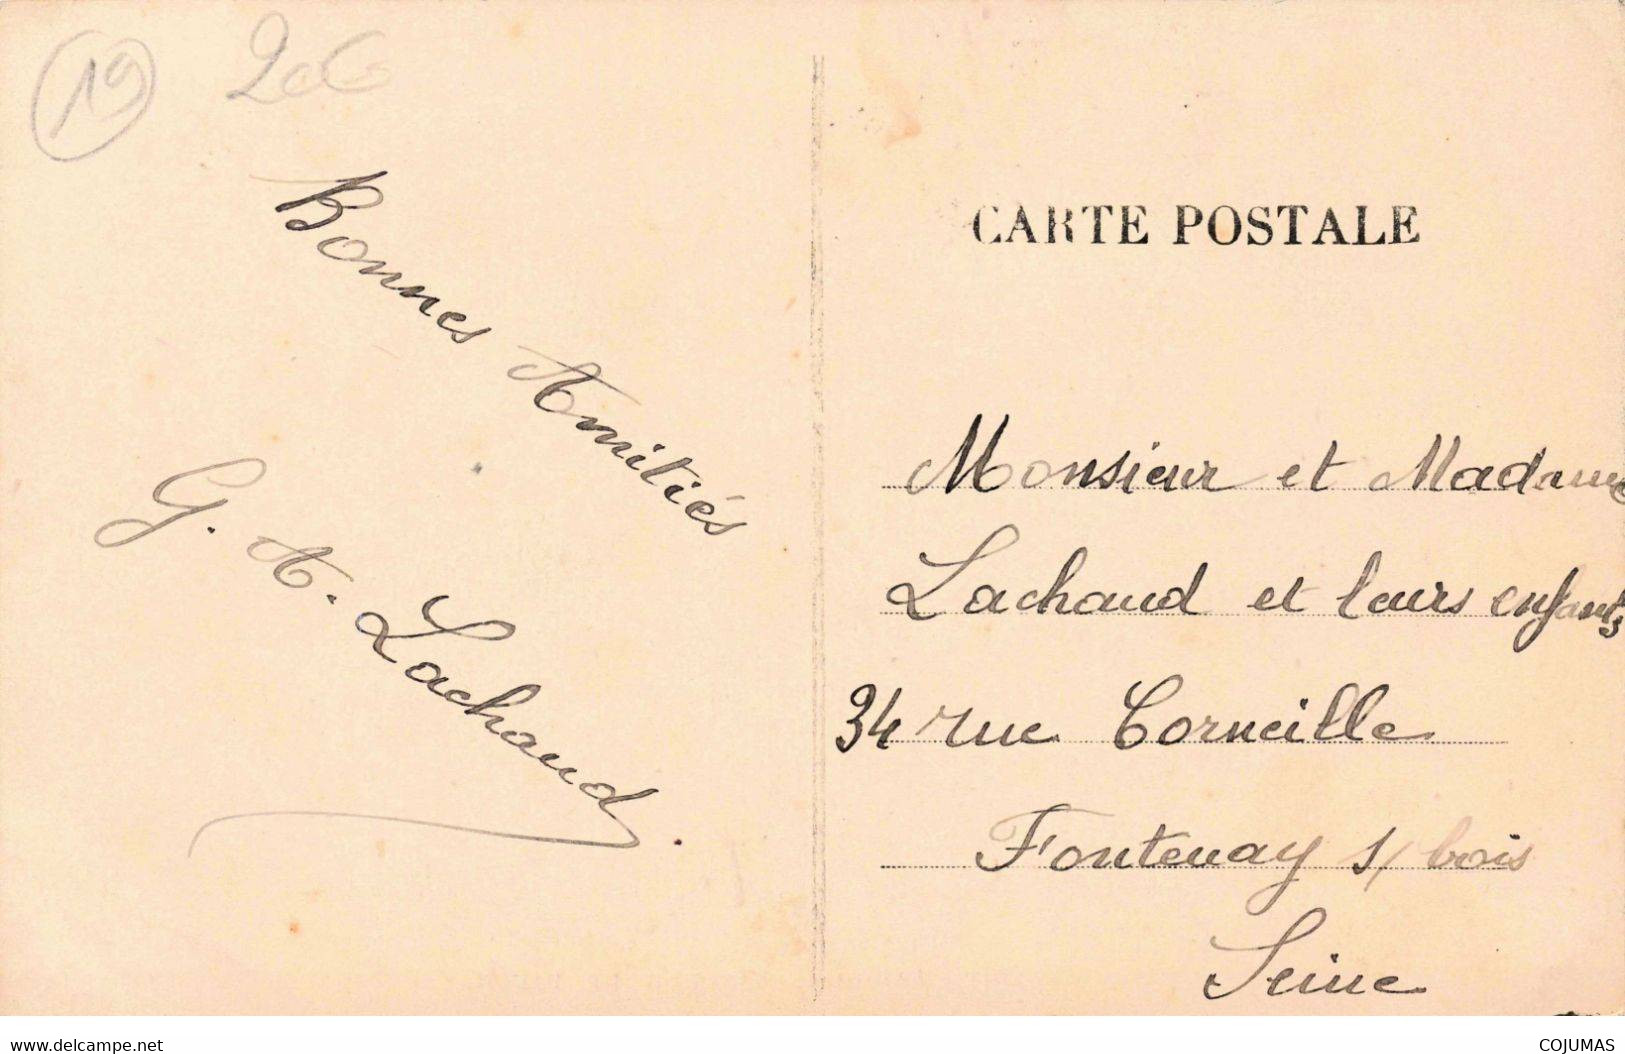 19
Bonnes Amitiés
G. A. Lachaud.
CARTE POSTALE
Monsieur et Madame
Lachaud et leurs enfants
34 rue Corneille
Fontenay s/ bois
Seine
www.delcampe.net
COJUMAS